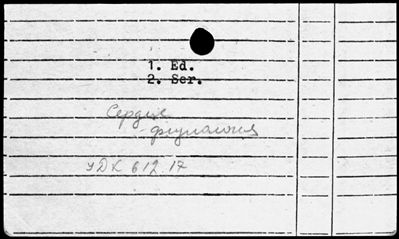 1. Ed.
2. Ser.
Сердце
физиология
УДК 612.17